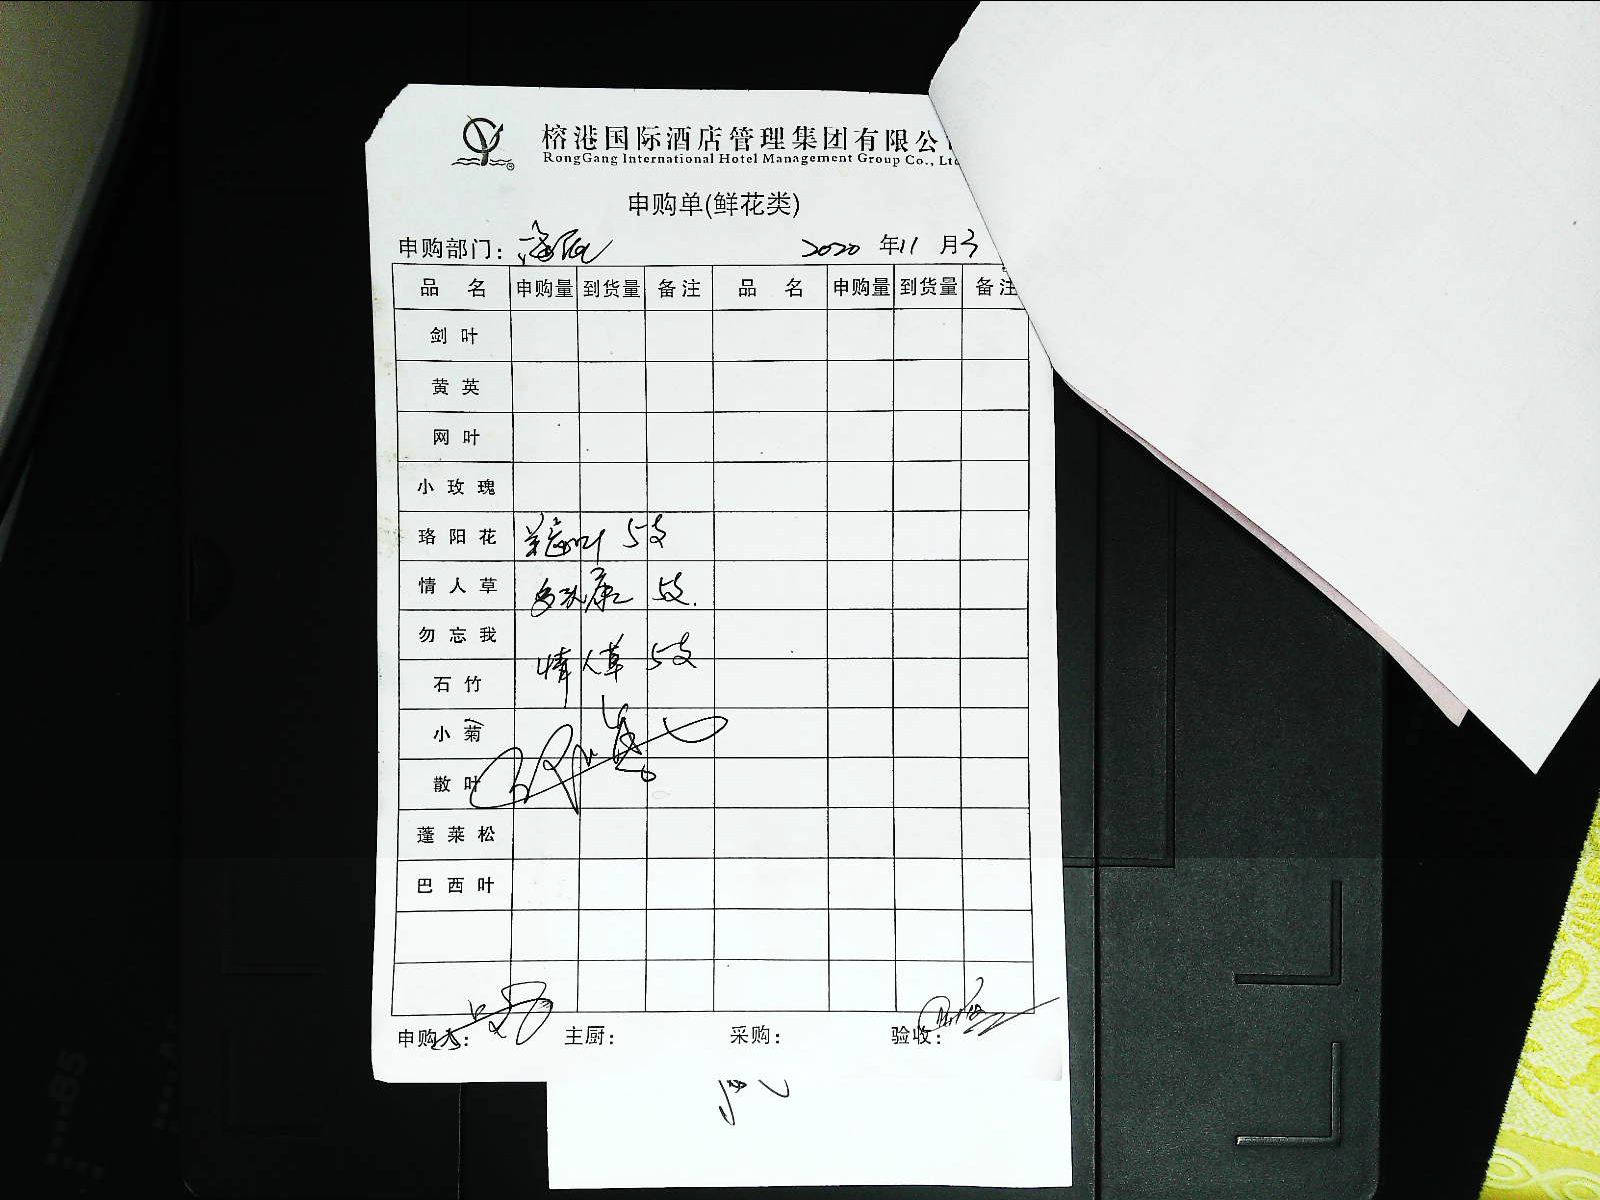 榕港国际酒店管理集团有限公
RongGang International Hotel Management Group Co., Ltd
申购单(鲜花类)
申购部门： 2020 年 11 月 3
品 名 申购量 到货量 备注 品 名 申购量 到货量 备注
剑叶
黄英
网叶
小玫瑰
珞阳花 5支
情人草 5支.
勿忘我
情人草 5支
石竹
小菊
散叶
蓬莱松
巴西叶
申购人： 主厨： 采购： 验收：